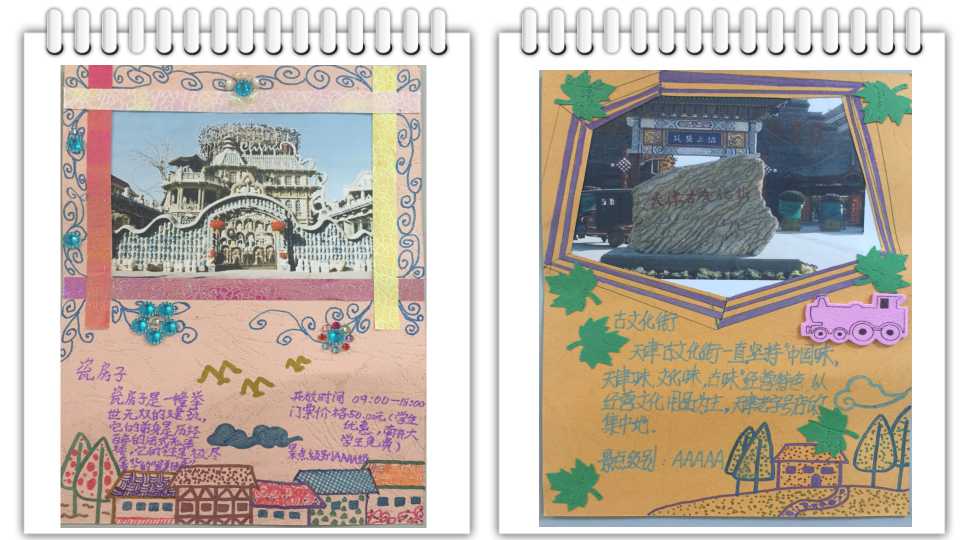 China
瓷房子
瓷房子是一幢举
世无双的建筑,
它的前身是历经
百年的法式老洋
楼,它的
开放时间 09:00—18:00
门票价格50.0元(学生
优惠,南开大
学生免费)
景点级别AAAA级
津门故里
天津古文化街
古文化街
天津古文化街一直坚持“中国味,
天津味,文化味,古味”经营特色,以
经营文化用品为主,天津老字号店的
集中地.
景点级别:AAAAA